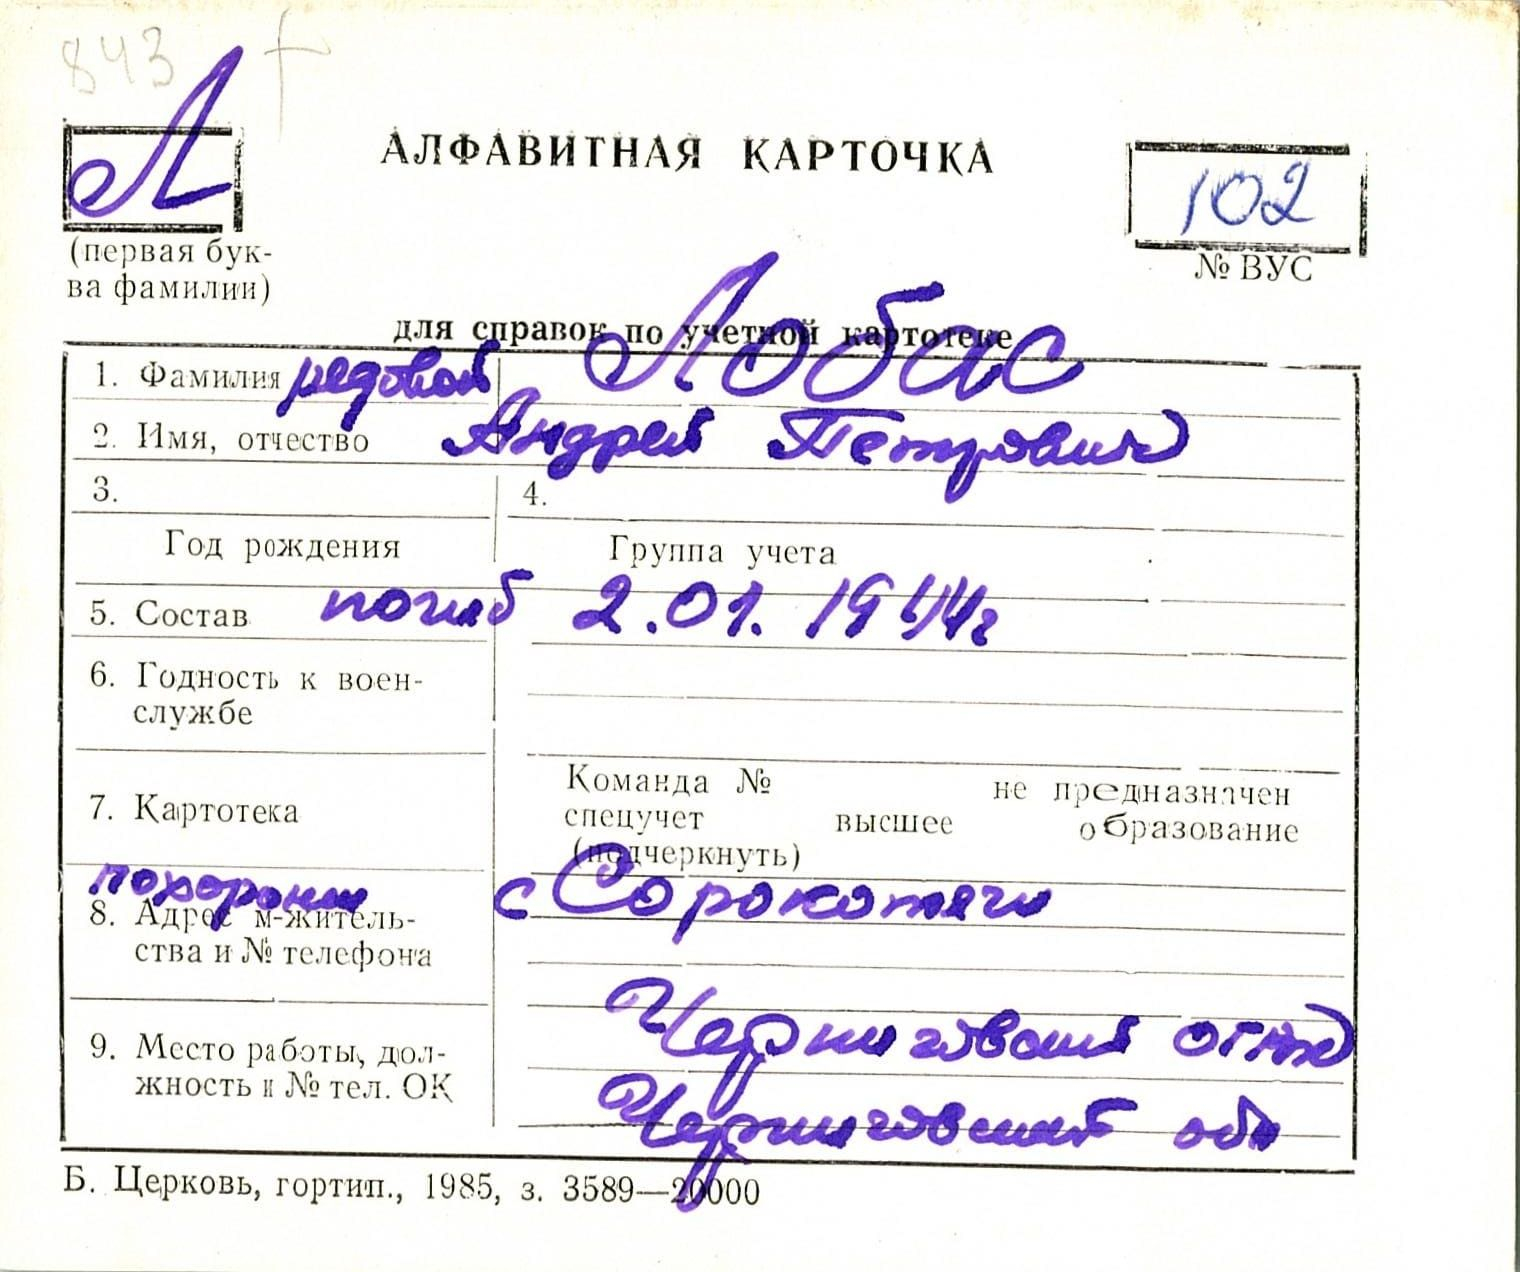 843
Л
АЛФАВИТНАЯ КАРТОЧКА
102
(первая бук-
ва фамилии)
№ ВУС
для справок по учетной картотеке
1. Фамилия рядовой Лобас
2. Имя, отчество Андрей Петрович
3. 4.
Год рождения Группа учета
5. Состав погиб 2.01.1944г
6. Годность к воен-
службе
7. Картотека
Команда № не предназначен
спецучет высшее образование
(подчеркнуть)
похоронен с Сорокотяги
8. Адрес м-житель-
ства и № телефона
9. Место работы, дол-
жность и № тел. ОК
Черниговский
Черниговской обл
Б. Церковь, гортип., 1985, з. 3589—20000